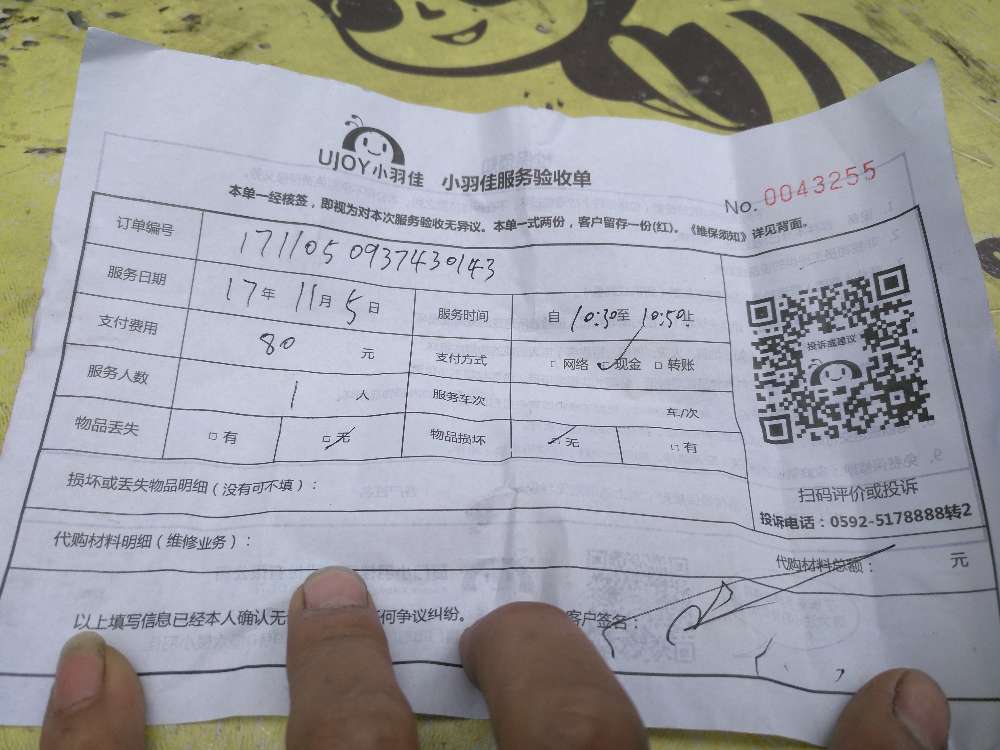 UJOY小羽佳 小羽佳服务验收单
No. 0043255
本单一经核签，即视为对本次服务验收无异议。本单一式两份，客户留存一份(红)。《维保须知》详见背面。
订单编号 171105 0937430143
服务日期 17年 11月 5日 服务时间 自 10:30至 10:50止
支付费用 80 元 支付方式 □ 网络 □ 现金 □ 转账
服务人数 1 人 服务车次 车/次
物品丢失 □ 有 □ 无 物品损坏 □ 无 □ 有
投诉或建议
扫码评价或投诉
投诉电话：0592-5178888转2
损坏或丢失物品明细（没有可不填）：
代购材料明细（维修业务）： 代购材料总额： 元
以上填写信息已经本人确认无 何争议纠纷。 客户签名：